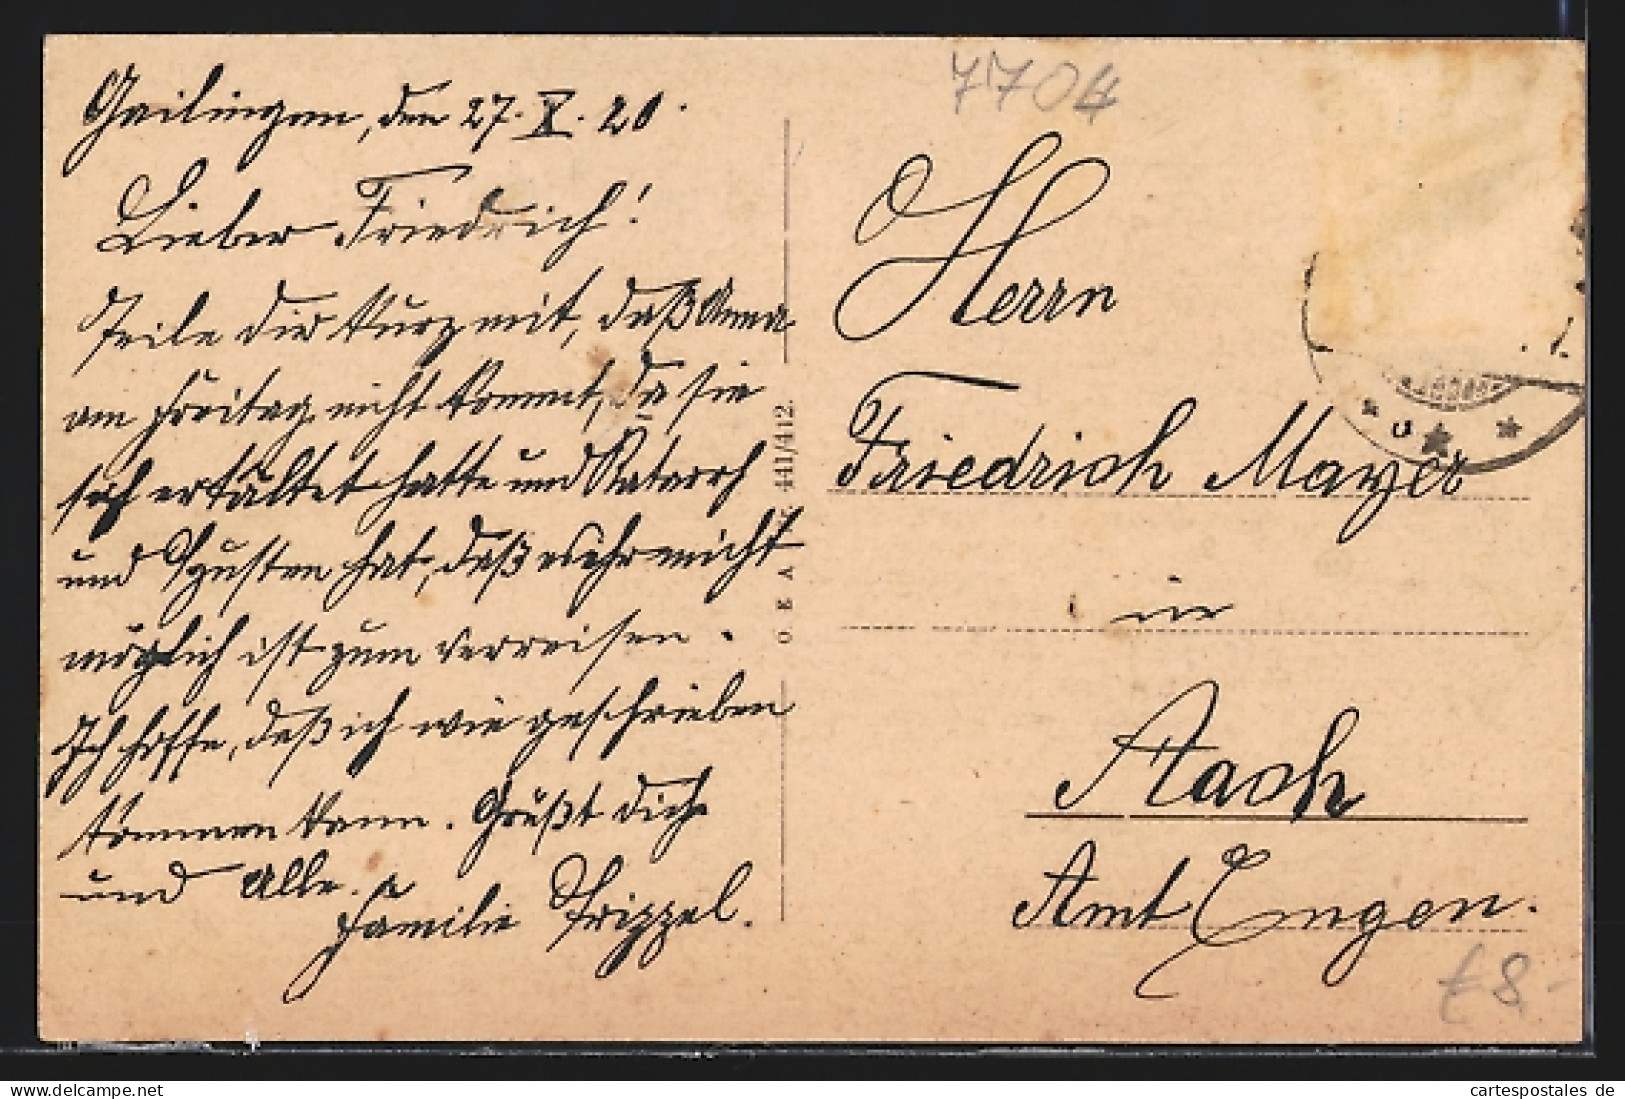 7704
Gailingen, den 27. X. 20.
Lieber Friedrich!
Teile dir kurz mit, daß Anna
am Freitag nicht kommt, da sie
sich erkältet hatte und Katarrh
und Husten hat, daß nicht
möglich ist zum verreisen.
Ich hoffe, daß ich wie geschrieben
kommen kann. Grüßt dich
und Alle
Familie Trippel.
O. E. A. 441/412.
Herrn
Friedrich Mayer
in
Aach
Amt Engen.
€ 8.-
https://www.delcampe.net
cartespostales de